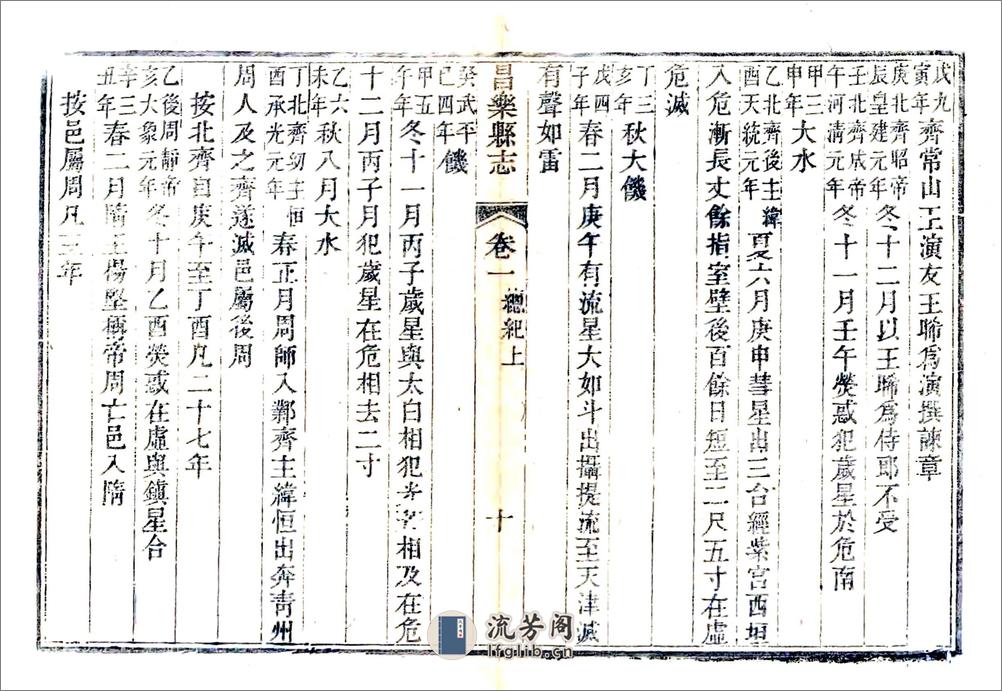 戊九寅年齊常山王演友王晞爲演撰諫章
庚北齊昭帝辰皇建元年冬十二月以王晞爲侍郎不受
壬北齊成帝午河淸元年冬十一月壬午熒惑犯歲星於危南
甲三申年大水
乙北齊後主緯酉天統元年夏六月庚申彗星出三台經紫宮西垣
入危漸長丈餘指室壁後百餘日短至二尺五寸在虛
危滅
丁三亥年秋大饑
戊四子年春二月庚午有流星大如斗出攝提流至天津滅
有聲如雷
昌樂縣志 卷一 總紀上 十
癸武平巳四年饑
甲五午年冬十一月丙子歲星與太白相犯光芒相及在危
十二月丙子月犯歲星在危相去二寸
乙六未年秋八月大水
丁北齊幼主恒酉承光元年春正月周師入鄴齊主緯恒出奔靑州
周人及之齊遂滅邑屬後周
按北齊自庚午至丁酉凡二十七年
乙後周靜帝亥大象元年冬十月乙酉熒惑在虛與鎭星合
辛三丑年春二月隋王楊堅稱帝周亡邑入隋
按邑屬周凡三年
流芳阁
lfglib.cn